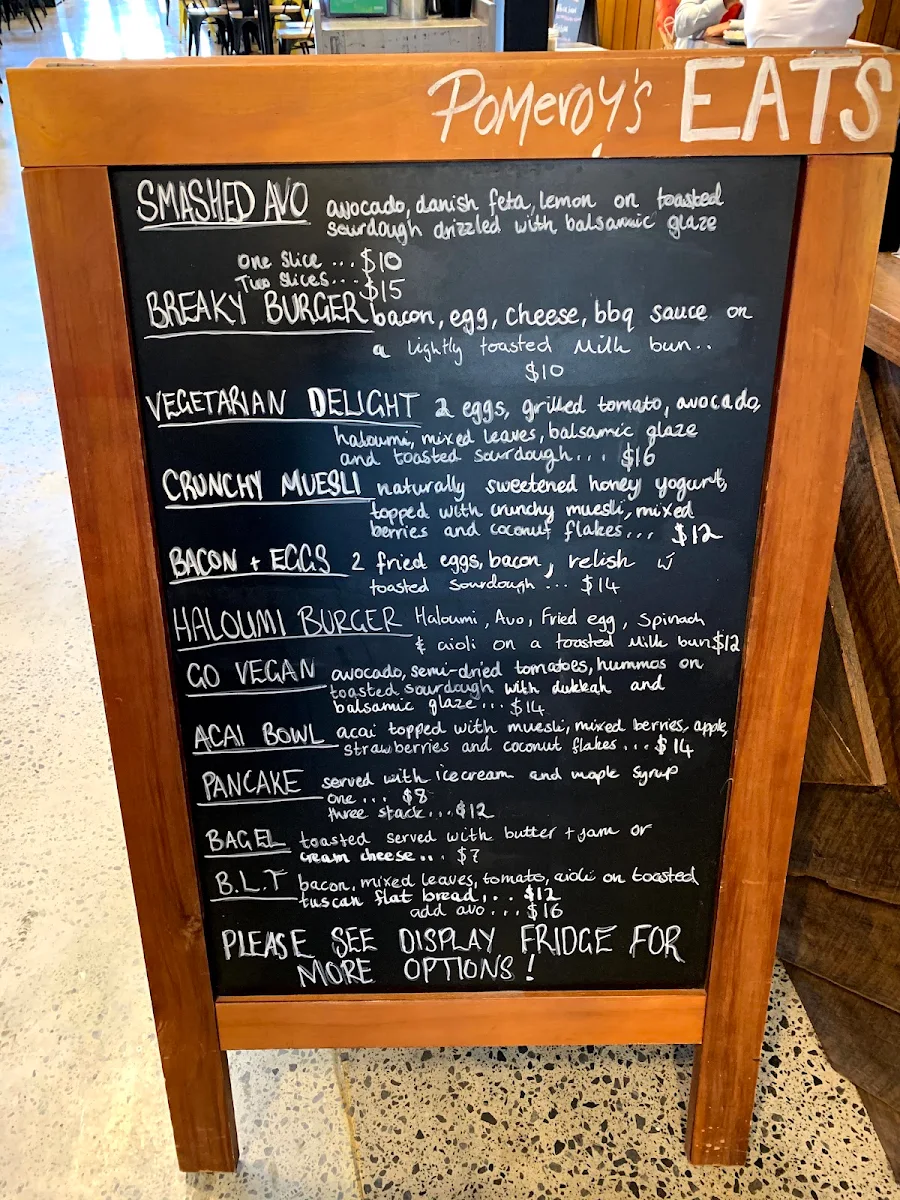 Pomeroy's EATS
SMASHED AVO avocado, danish feta, lemon on toasted
sourdough drizzled with balsamic glaze
one slice ... $10
Two slices... $15
BREAKY BURGER bacon, egg, cheese, bbq sauce on
a lightly toasted Milk bun..
$10
VEGETARIAN DELIGHT 2 eggs, grilled tomato, avocado,
haloumi, mixed leaves, balsamic glaze
and toasted sourdough... $16
CRUNCHY MUESLI naturally sweetened honey yogurt,
topped with crunchy muesli, mixed
berries and coconut flakes... $12
BACON + EGGS 2 fried eggs, bacon, relish w/
toasted sourdough ... $14
HALOUMI BURGER Haloumi, Avo, Fried egg, Spinach
& aioli on a toasted Milk bun $12
GO VEGAN avocado, semi-dried tomatoes, hummos on
toasted sourdough with dukkah and
balsamic glaze... $14
ACAI BOWL acai topped with muesli, mixed berries, apple,
strawberries and coconut flakes... $14
PANCAKE served with icecream and maple syrup
one ... $8
three stack... $12
BAGEL toasted served with butter + jam or
cream cheese... $7
B.L.T bacon, mixed leaves, tomato, aioli on toasted
tuscan flat bread... $12
add avo... $16
PLEASE SEE DISPLAY FRIDGE FOR
MORE OPTIONS!